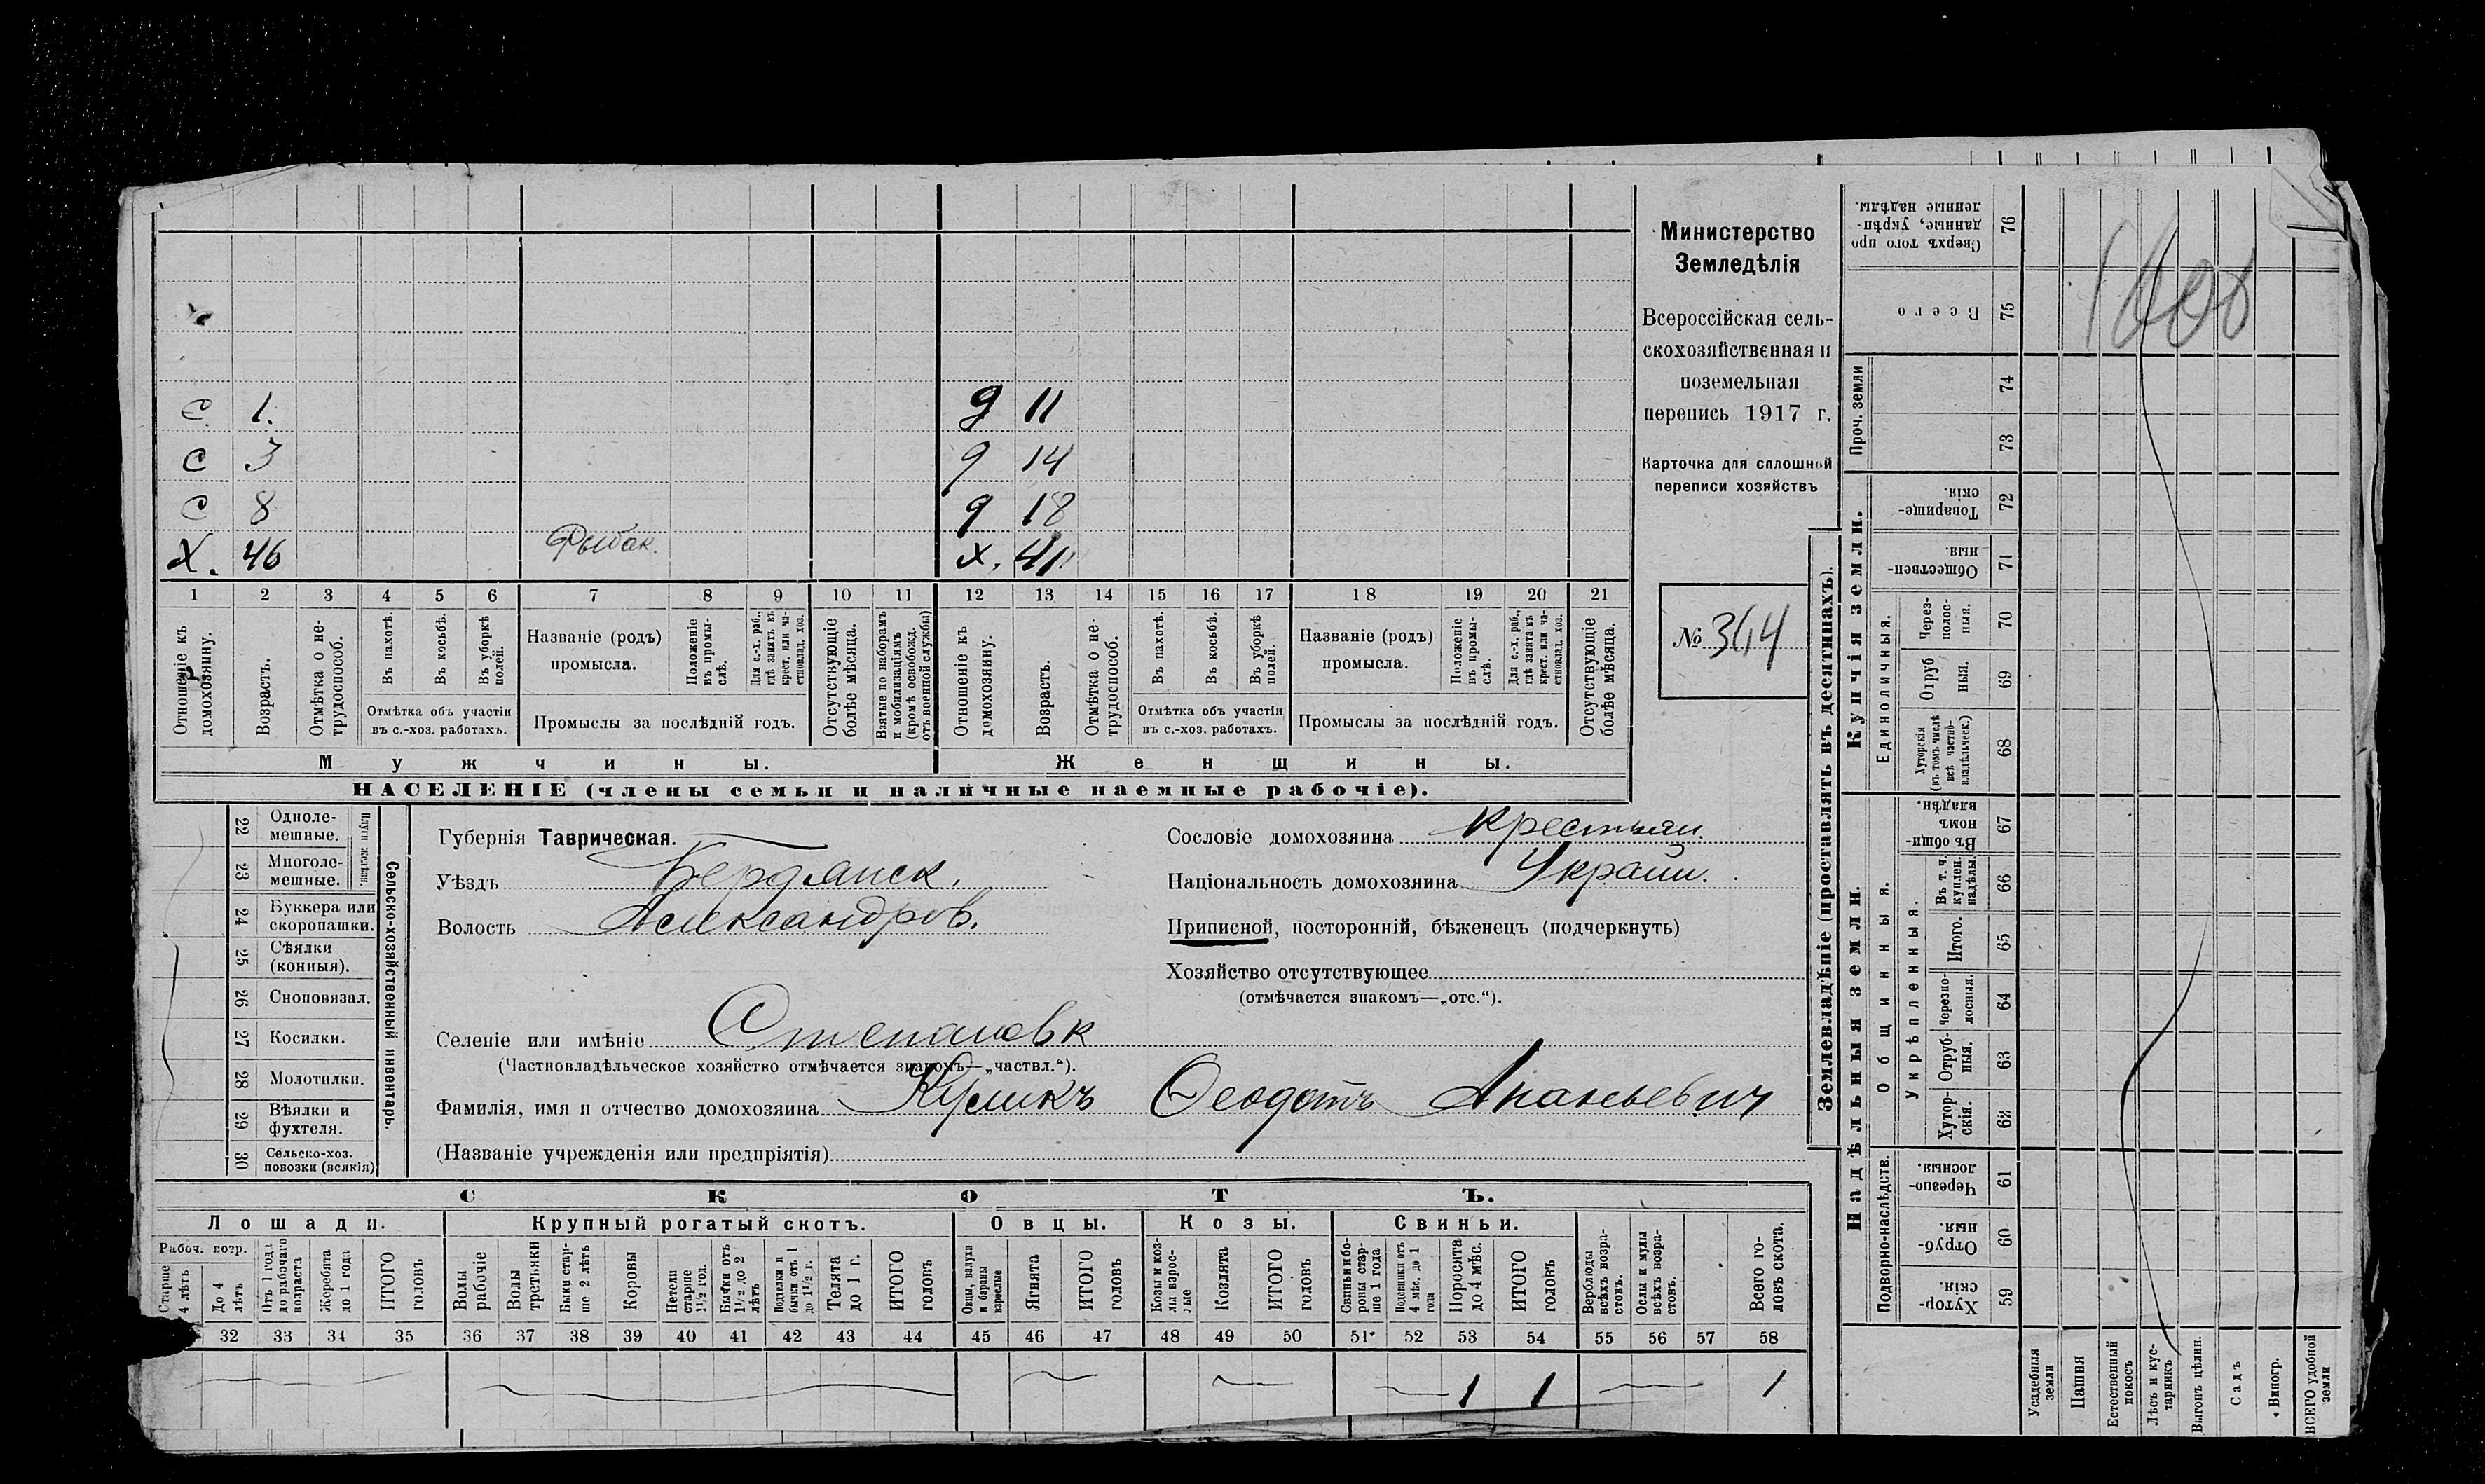 Министерство
Земледѣлія
Всероссійская сель-
скохозяйственная и
поземельная
перепись 1917 г.
Карточка для сплошной
переписи хозяйствъ
№ 364
С 1. д 11
С 3 д 14
С 8 д 18
Х. 46 Рыбак. х. 41
1 2 3 4 5 6 7 8 9 10 11 12 13 14 15 16 17 18 19 20 21
Отношеніе къ домохозяину.
Возрастъ.
Отмѣтка о не-трудоспособ.
Въ пахотѣ.
Въ косьбѣ.
Въ уборкѣ полей.
Отмѣтка объ участіи
въ с.-хоз. работахъ.
Названіе (родъ)
промысла.
Положеніе въ промы-слѣ.
Для с.-х. раб., гдѣ занятъ въ крест. или ча-стновлад. хоз.
Промыслы за послѣдній годъ.
Отсутствующіе болѣе мѣсяца.
Взятые по наборамъ и мобилизаціямъ (кромѣ освобожд. отъ военной службы)
Отношеніе къ домохозяину.
Возрастъ.
Отмѣтка о не-трудоспособ.
Въ пахотѣ.
Въ косьбѣ.
Въ уборкѣ полей.
Отмѣтка объ участіи
въ с.-хоз. работахъ.
Названіе (родъ)
промысла.
Положеніе въ промы-слѣ.
Для с.-х. раб., гдѣ занята въ крест. или ча-стновлад. хоз.
Промыслы за послѣдній годъ.
Отсутствующіе болѣе мѣсяца.
Мужчины. Женщины.
НАСЕЛЕНІЕ (члены семьи и наличные наемные рабочіе).
Сельско-хозяйственный инвентарь.
Плуги желѣзн.
22 Одноле-мешные.
23 Многоле-мешные.
24 Буккера или скоропашки.
25 Сѣялки (конныя).
26 Сноповязал.
27 Косилки.
28 Молотилки.
29 Вѣялки и фухтеля.
30 Сельско-хоз. повозки (всякія)
Губернія Таврическая.
Уѣздъ Бердянск.
Волость Александров.
Селеніе или имѣніе Степановк
(Частновладѣльческое хозяйство отмѣчается знакомъ—„частвл.“).
Фамилія, имя и отчество домохозяина Куликъ Ѳеодотъ Ананьевич
(Названіе учрежденія или предпріятія)
Сословіе домохозяина крестьян.
Національность домохозяина Украин.
Приписной, посторонній, бѣженецъ (подчеркнуть)
Хозяйство отсутствующее
(отмѣчается знакомъ—„отс.“).
СКОТЪ.
Лошади. Крупный рогатый скотъ. Овцы. Козы. Свиньи.
Рабоч. возр.
Старше 4 лѣтъ
До 4 лѣтъ
Отъ 1 года до рабочаго возраста
Жеребята до 1 года
ИТОГО головъ
Волы рабочіе
Волы третьяки
Быки стар-ше 2 лѣтъ
Коровы
Нетели старше 1½ год.
Бычки отъ 1½ до 2 лѣтъ
Подтелки и бычки отъ 1 до 1½ г.
Телята до 1 г.
ИТОГО головъ
Овцы, валухи и бараны взрослые
Ягнята
ИТОГО головъ
Козы и коз-лы взрос-лые
Козлята
ИТОГО головъ
Свиньи и бо-ровы стар-ше 1 года
Подсвинки отъ 4 мѣс. до 1 года
Поросята до 4 мѣс.
ИТОГО головъ
Верблюды всѣхъ возра-стовъ.
Ослы и мулы всѣхъ возра-стовъ.
Всего го-ловъ скота.
32 33 34 35 36 37 38 39 40 41 42 43 44 45 46 47 48 49 50 51 52 53 54 55 56 57 58
1 1 1
Землевладѣніе (проставлять въ десятинахъ).
Купчія земли.
Надѣльныя земли.
Сверхъ того про данные, укрѣп-ленные надѣлы. 76
Всего 75
Проч. земли 74 73
Товарище-скія. 72
Обществен-ныя. 71
Единоличныя.
Через-полос-ныя. 70
Отруб ныя. 69
Хуторскія (въ томъ числѣ всѣ частно-владѣльческ.) 68
Общинныя.
Въ общин-номъ владѣн. 67
Укрѣпленныя.
Въ т. ч. куплен. надѣлы. 66
Итого. 65
Черезпо-лосныя. 64
Отруб-ныя. 63
Хутор-скія. 62
Подворно-наслѣдств.
Черезпо-лосныя. 61
Отруб-ныя. 60
Хутор-скія. 59
Усадебныя земли
Пашня
Естественный покосъ
Лѣсъ и кус-тарникъ
Выгонъ цѣлин.
Садъ
Виногр.
ВСЕГО удобной земли